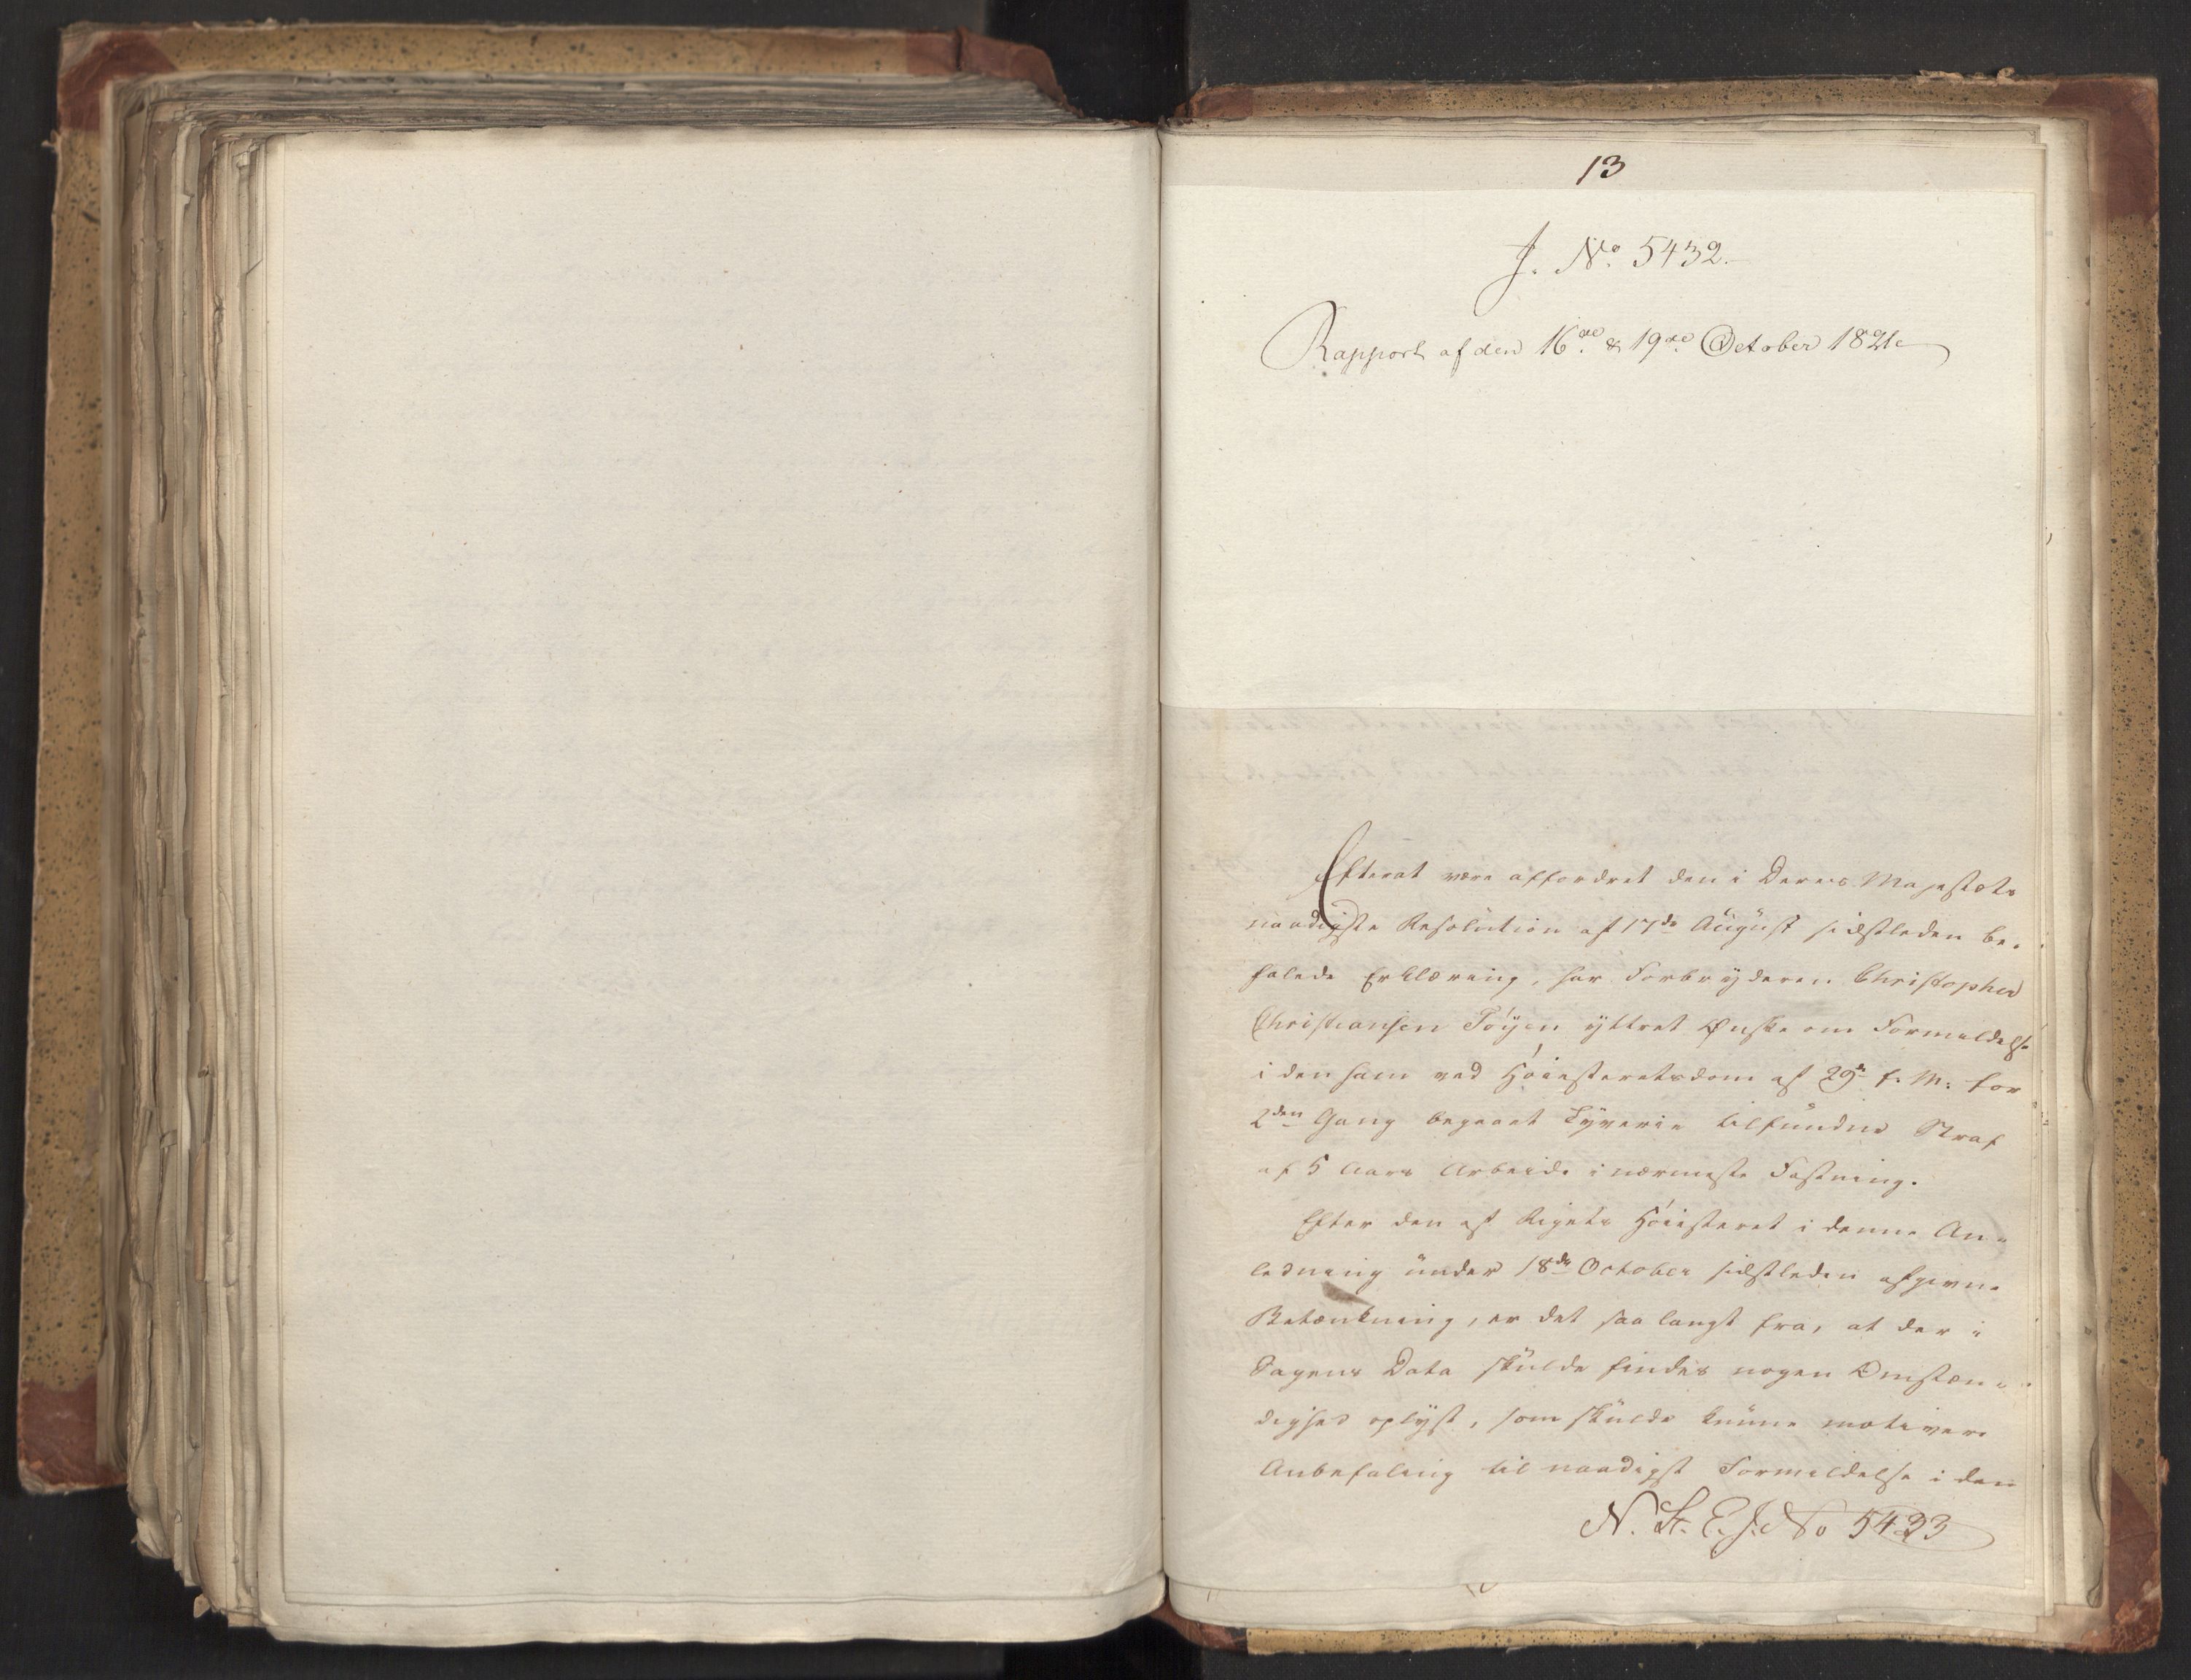 13
J. No. 5432.
Rapport af den 16de & 19de October 1821
Efterat være affordret den i Deres Majestæts
naadigste Resolution af 17de August sidstleden be-
falede Erklæring, har Forbryderen Christopher
Christiansen Töyen yttret Ønske om Formildelse
i den ham ved Höiesteretsdom af 29de f. M. for
2den Gang begaaet Tyverie tilfundne Straf
af 5 Aars Arbeide i nærmeste Fæstning.
Efter den af Rigets Höiesteret i denne An-
ledning under 18de October sidstleden afgivne
Betænkning, er det saa langt fra, at der i
Sagens Data skulde findes nogen Omstæn-
dighed oplyst, som skulde kunne motivere
Anbefaling til naadigst Formildelse i den
N. St. E. J. No 5423